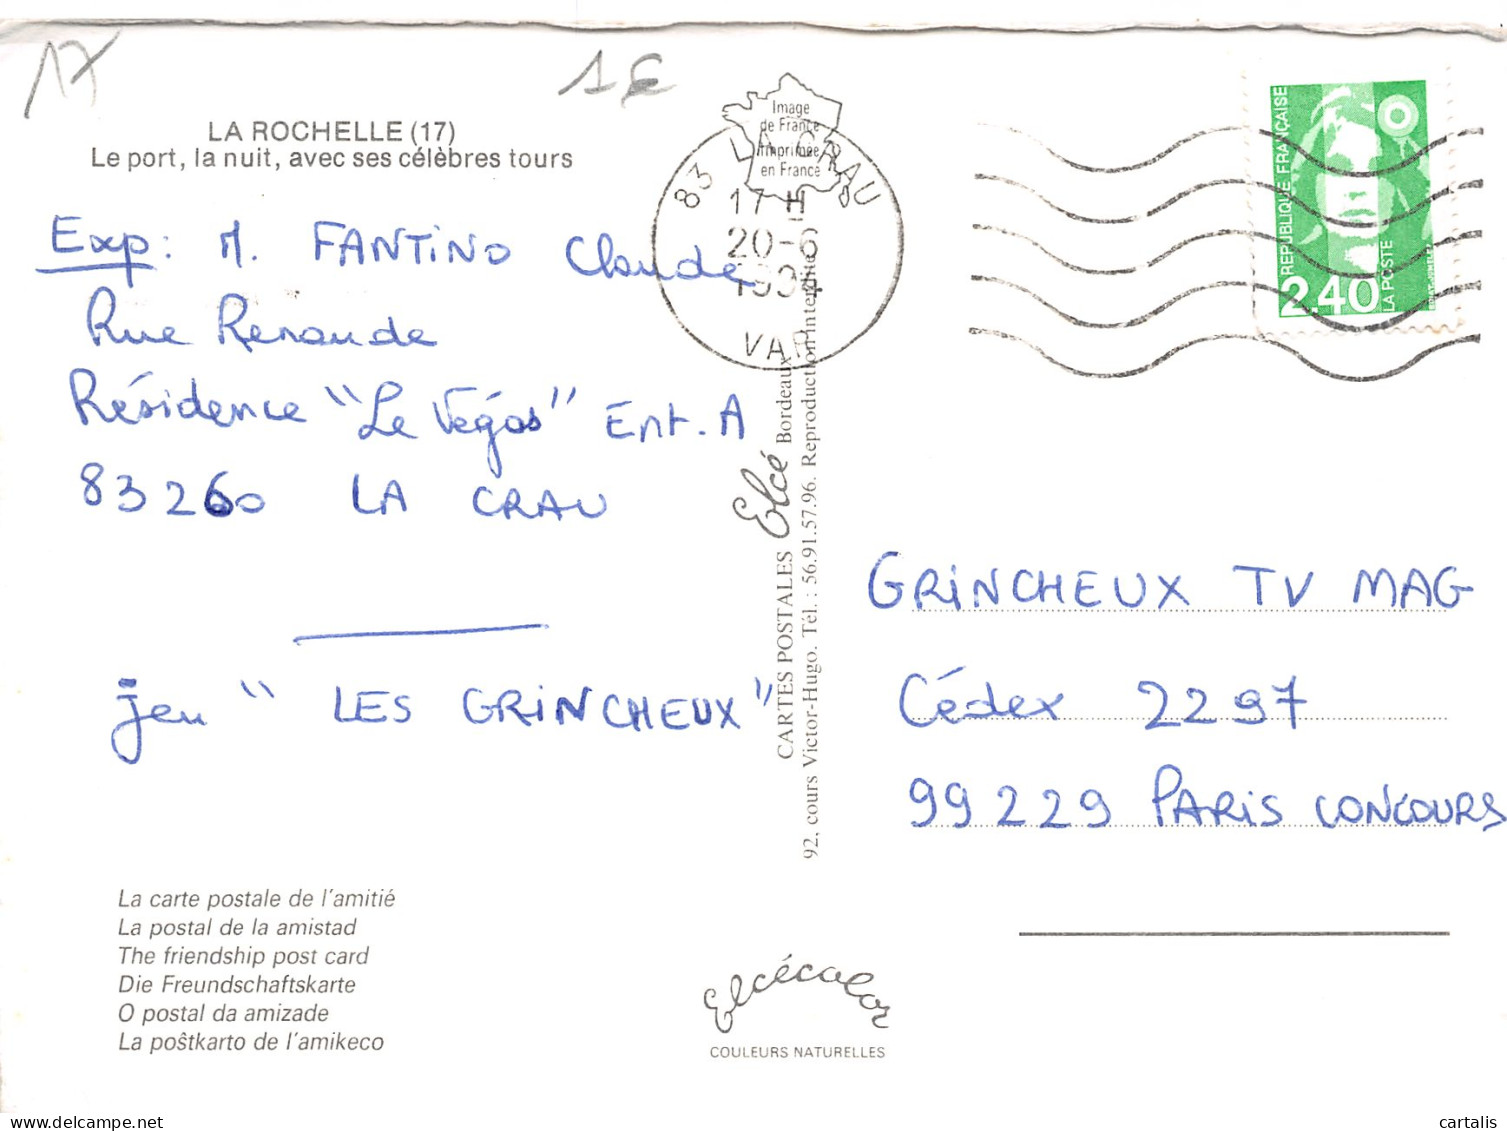 17
1€
LA ROCHELLE (17)
Le port, la nuit, avec ses célèbres tours
Exp: M. FANTINO Claude
Rue Renaude
Résidence "Le Végas" Ent. A
83260 LA CRAU
jeu "LES GRINCHEUX"
La carte postale de l'amitié
La postal de la amistad
The friendship post card
Die Freundschaftskarte
O postal da amizade
La poŝtkarto de l'amikeco
Image
de France
Imprimée
en France
83 LA CRAU
17 H
20-6
1994
VAR
CARTES POSTALES Elcé Bordeaux
92, cours Victor-Hugo. Tél. : 56.91.57.96. Reproduction interdite
Elcécolor
COULEURS NATURELLES
REPUBLIQUE FRANÇAISE
2.40
LA POSTE
GRINCHEUX TV MAG
Cédex 2297
99229 PARIS CONCOURS
delcampe.net
cartalis